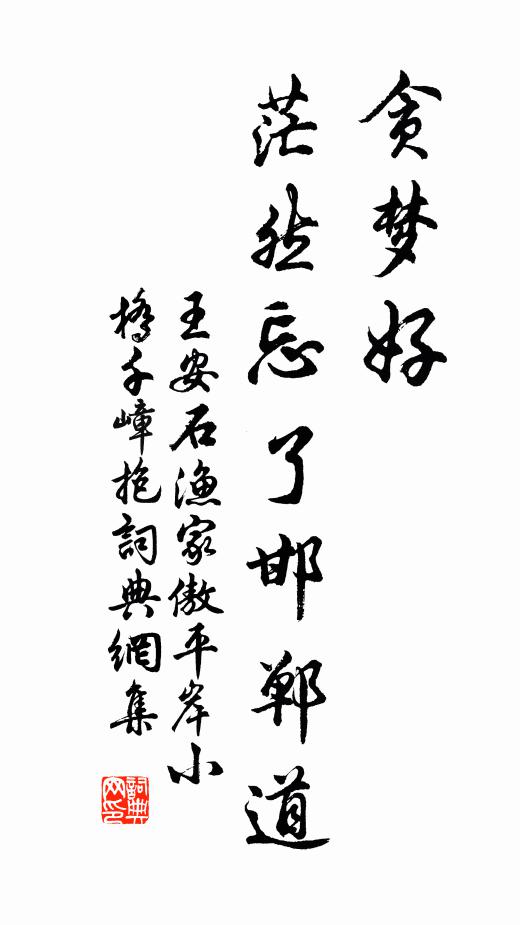 贪梦好
茫然忘了邯郸道
王安石渔家傲平岸小
橋千嶂抱詞典網集
詞典
网印